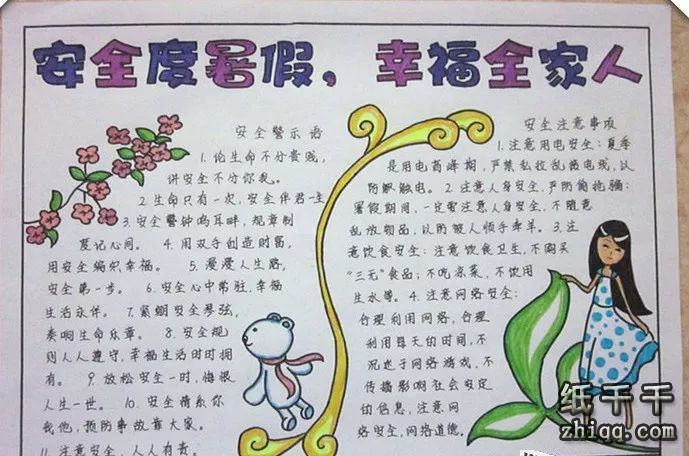 安全度暑假，幸福全家人
安全警示语
1.论生命不分贵贱，
讲安全不分你我。
2.生命只有一次，安全伴君一生
3.安全警钟鸣耳畔，规章制
度记心间。 4.用双手创造财富，
用安全编织幸福。 5.漫漫人生路，
安全第一步。 6.安全心中常驻，幸福
生活永伴。 7.紧绷安全琴弦，
奏响生命乐章。 8.安全规
则人人遵守，幸福生活时时拥
有。 9.放松安全一时，悔恨
人生一世。 10.安全情系你
我他，预防事故靠大家。
11.注意安全，人人有责。
安全注意事项
1.注意用电安全：夏季
是用电高峰期，严禁私拉乱接电线，以
防触电。2.注意人身安全，严防偷抢骗：
暑假期间，一定要注意人身安全，不随意
乱放物品，以防被人顺手牵羊。3.注
意饮食安全：注意饮食卫生，不购买
“三无”食品；不吃凉菜，不饮用
生水等。4.注意网络安全：
合理利用网络，合理
利用每天的时间，不
沉迷于网络游戏，不
传播影响社会安定
的信息，注意网
络安全，网络道德。
纸千千
zhiqq.com